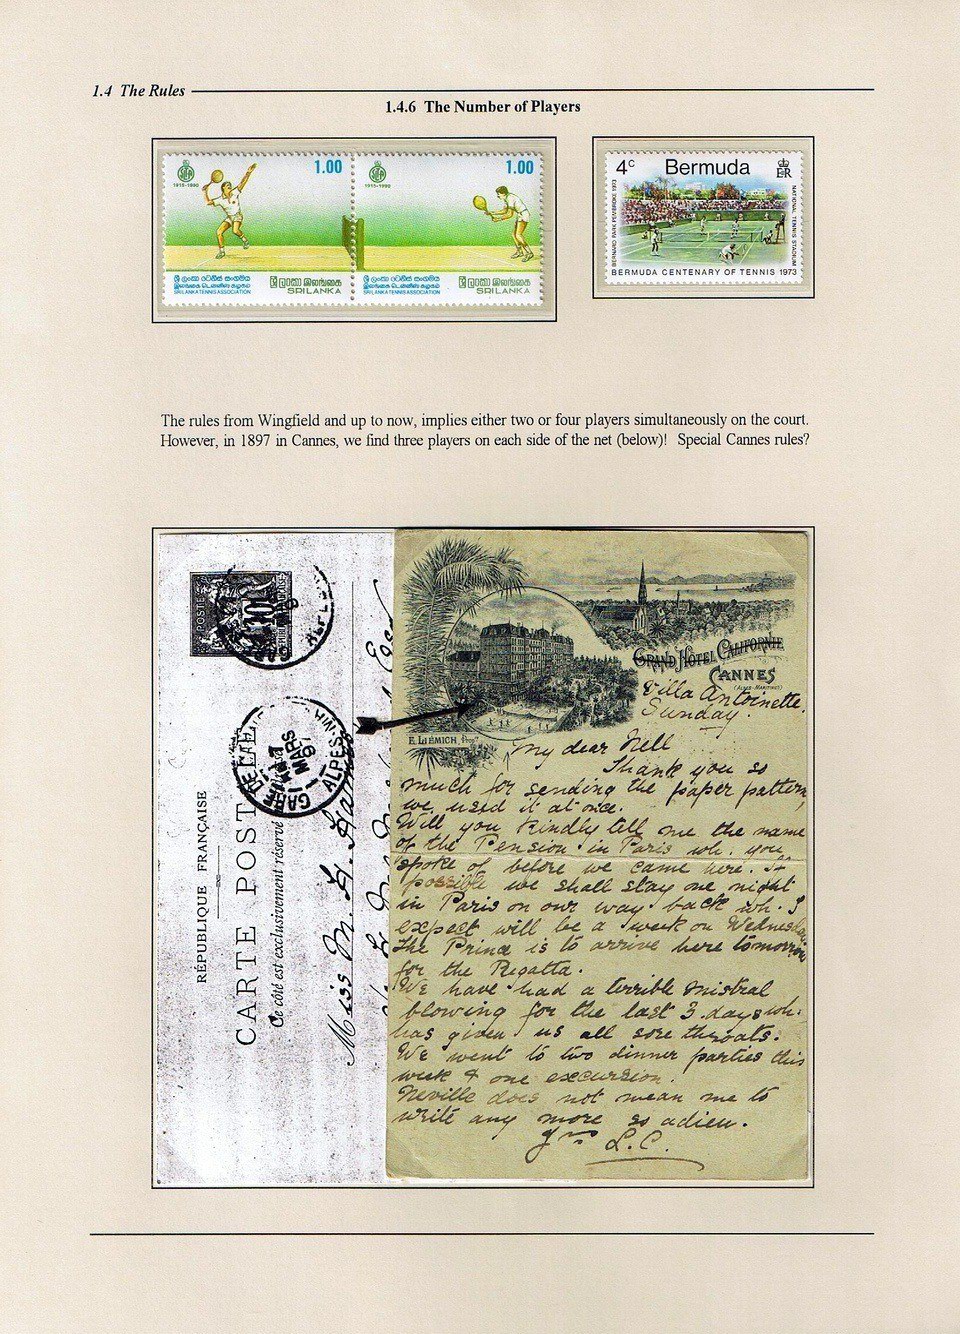 1.4 The Rules
1.4.6 The Number of Players
1.00
1915-1990
ශ්‍රී ලංකා ටෙනිස් සංගමය
SRI LANKA TENNIS ASSOCIATION
ශ්‍රී ලංකා இலங்கை
SRI LANKA
1.00
1915-1990
ශ්‍රී ලංකා ටෙනිස් සංගමය
SRI LANKA TENNIS ASSOCIATION
ශ්‍රී ලංකා இலங்கை
SRI LANKA
4c Bermuda
E R
BERNARD PARK PEMBROKE 1973
NATIONAL TENNIS STADIUM
BERMUDA CENTENARY OF TENNIS 1973
The rules from Wingfield and up to now, implies either two or four players simultaneously on the court.
However, in 1897 in Cannes, we find three players on each side of the net (below)! Special Cannes rules?
POSTE
10
RÉPUBLIQUE FRANÇAISE
CARTE POSTALE
Ce côté est exclusivement réservé
MARS
97
Miss M. A.
GRAND HÔTEL CALIFORNIE
CANNES
(ALPES-MARITIMES)
E. LIÉMICH, Propre
Villa Antoinette.
Sunday.
My dear Nell
Thank you so
much for sending the paper pattern,
we used it at once.
Will you kindly tell me the name
of the Pension in Paris wh. you
spoke of before we came here. If
possible we shall stay one night
in Paris on our way back wh. I
expect will be a week on Wednesday
The Prince is to arrive here tomorrow
for the Regatta.
We have had a terrible mistral
blowing for the last 3 days wh.
has given us all sore throats.
We went to two dinner parties this
week & one excursion.
Neville does not mean me to
write any more so adieu.
Yrs L.C.